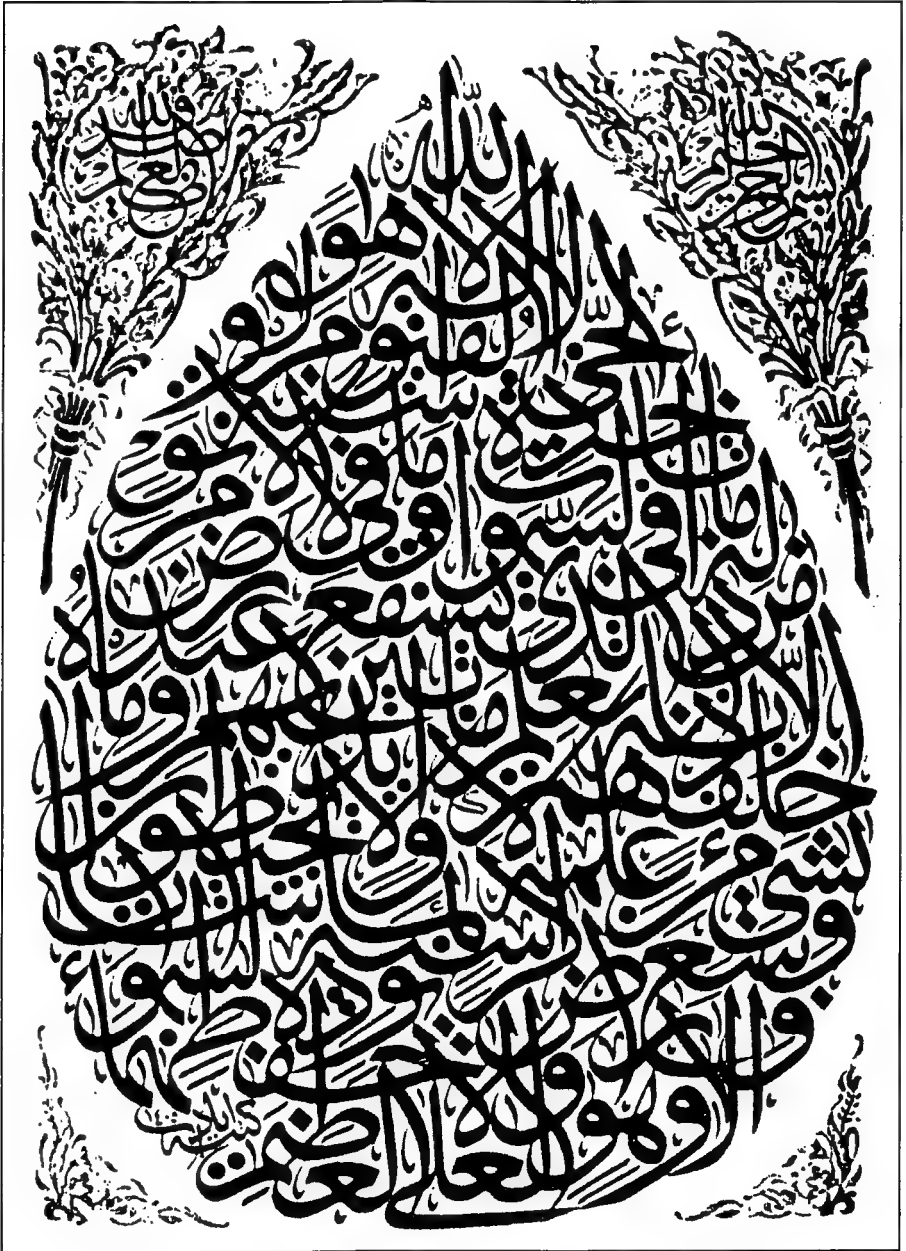 الله
لا إله إلا هو
الحي القيوم
لا تأخذه سنة ولا نوم
له ما في السموات وما في الأرض
من ذا الذي يشفع عنده
إلا بإذنه يعلم ما بين أيديهم وما
خلفهم ولا يحيطون
بشيء من علمه إلا بما شاء
وسع كرسيه السموات
والأرض ولا يؤده حفظهما
وهو العلي العظيم